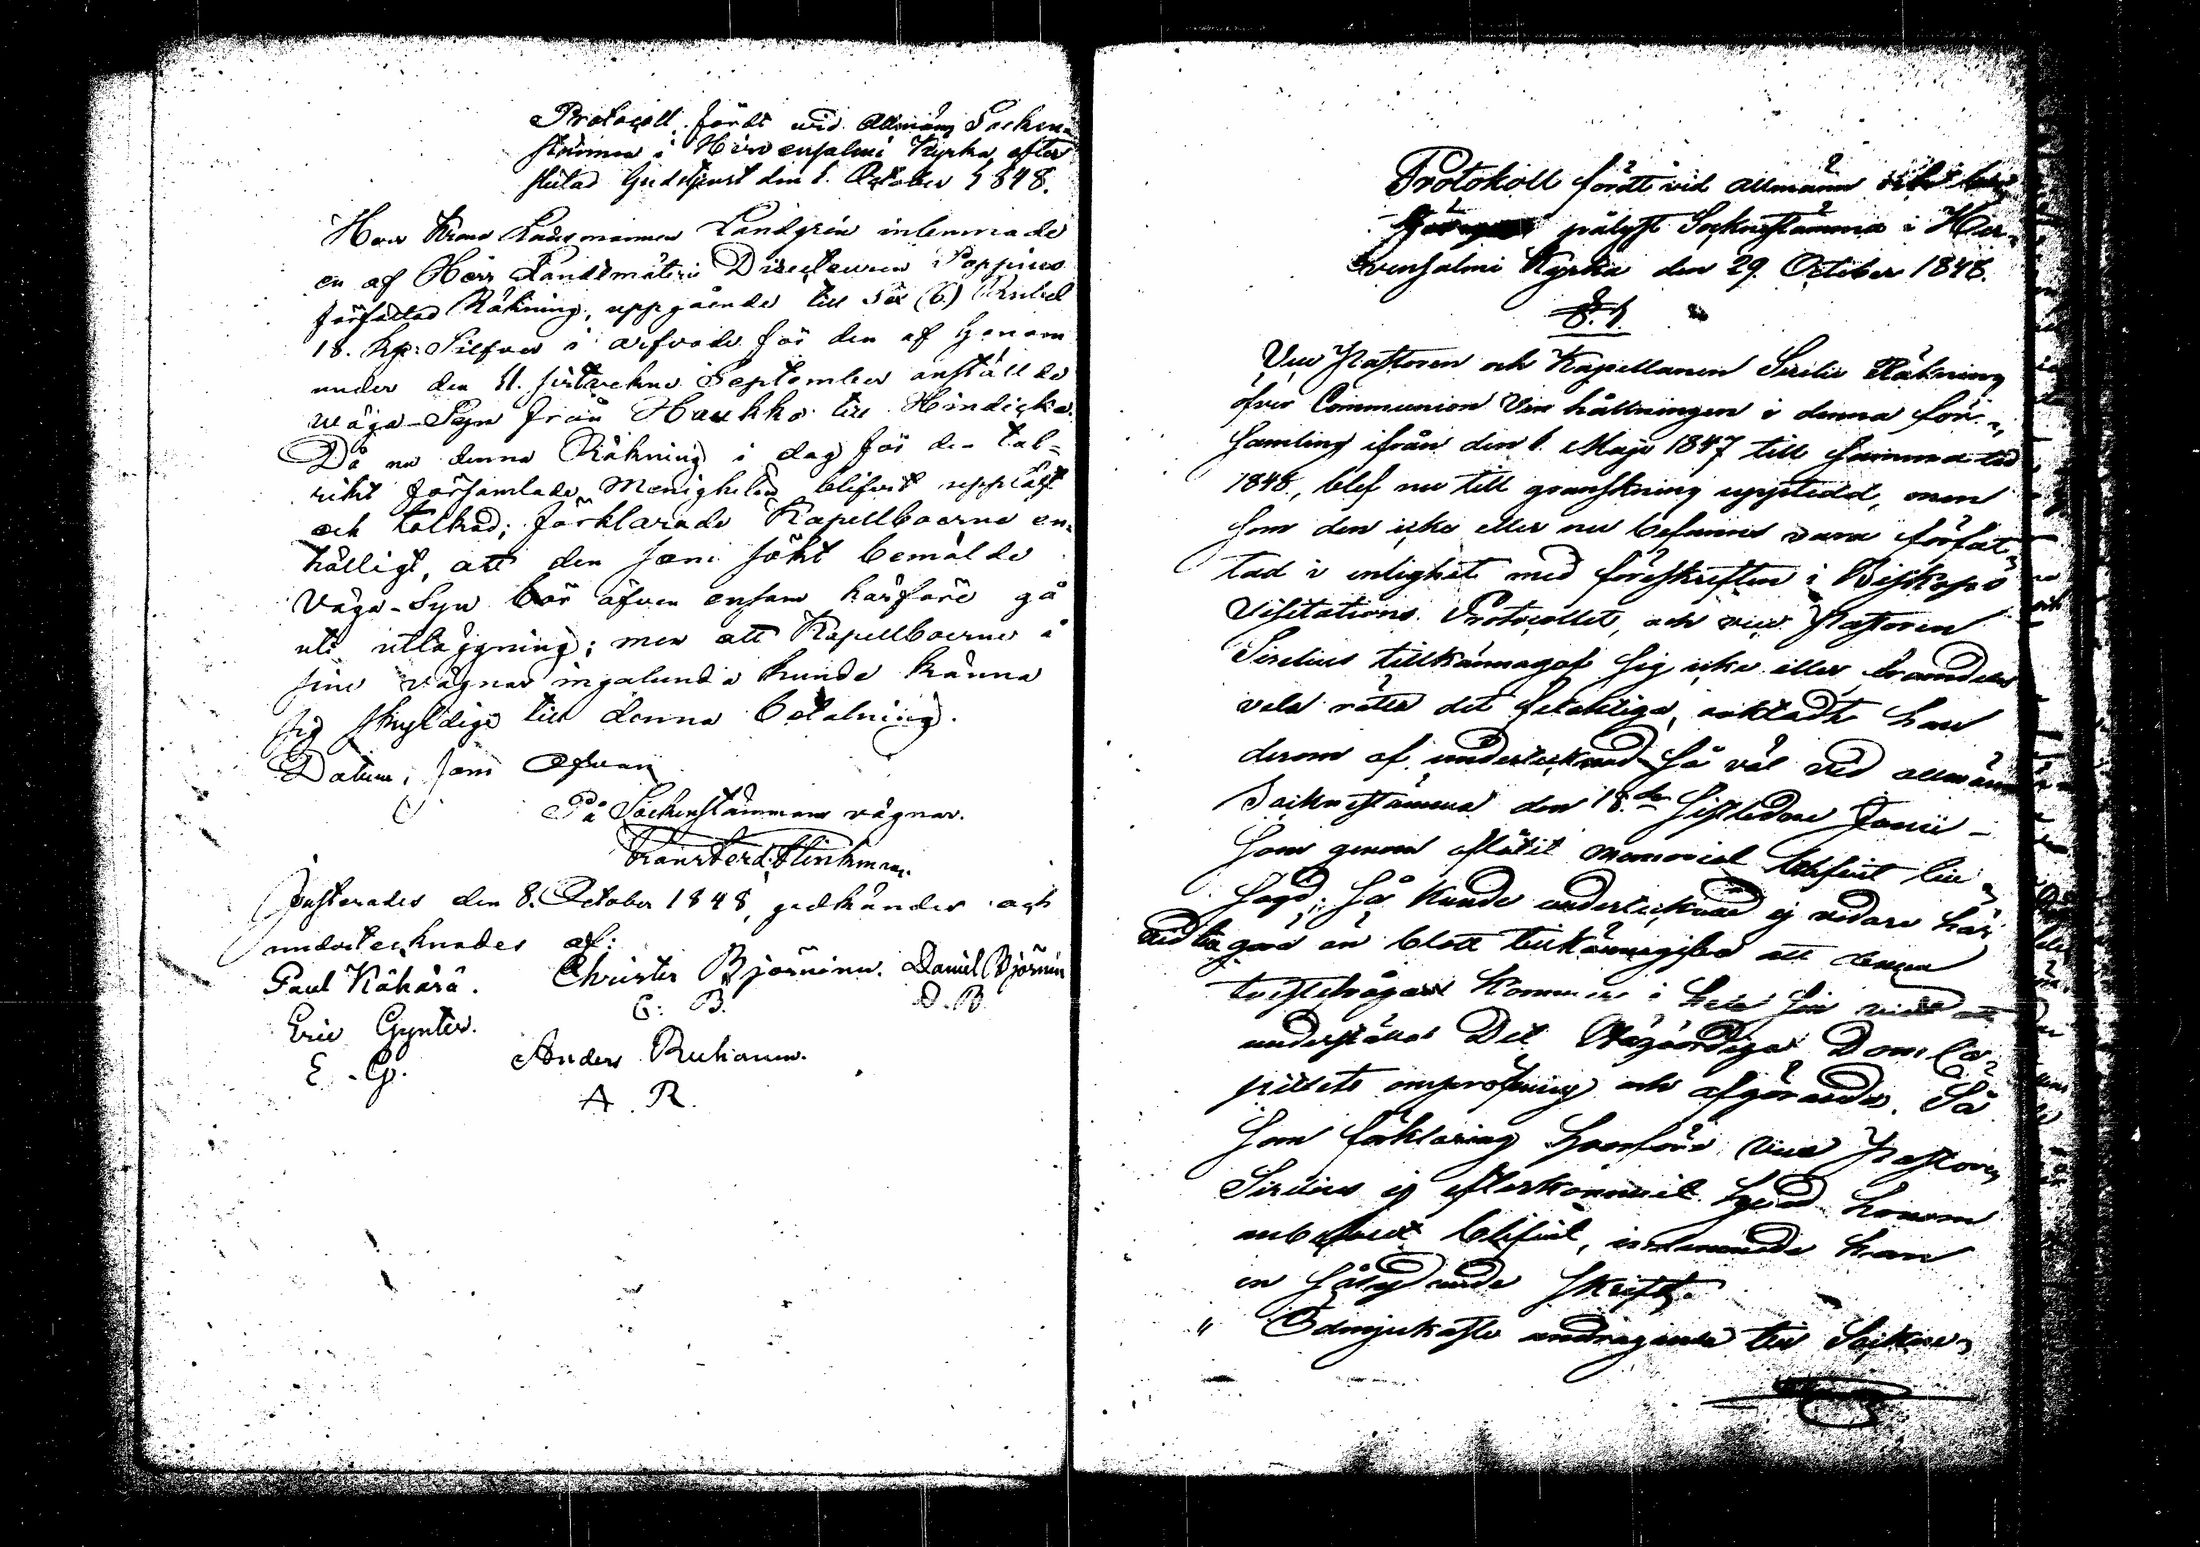 Protocoll fördt wid Allmäng Socken-
stämma i Hirvensalmi Kyrka, efter
slutad Gudstjenst den 1. October 1848.
Herr Krono Länsmannen Landgrén inlemnade
en af Herr Landtmäteri Directeuren Poppius
författad Räkning, uppgående till Sex (6) Rubel
18. kp: Silfver i arfvode för den af honom
under den 11. sistvekne September anstälde
wäga-Syn från Haukko till Hindicka.
Då nu denna Räkning i dag för de tal-
rikt församlade Menigheten blifvit uppläst
och tolkad; förklarade Kapellboerne en-
hälligt, att den som sökt bemälde
Väga-Syn bör äfven ensam härföre gå
uti utläggning; men att Kapellboerne å
sine vägnar ingalunda kunde känna
sig skyldige till denna betalning.
Datum, som Ofvan
På Sockenstämmans vägnar.
Frans Ferd. Flinkman.
Justerades den 8. October 1848, gedkändes och
undertecknades af:
Paul Kähärä. Christer Björninen. Daniel Björnin
C. B. D. B.
Eric Gynter.
E. G. Anders Ruhanen.
A. R.
Protokoll fördt vid allmänn
pålyst Socknestämma i Hir-
vensalmi Kyrka den 29. October 1848.
§. 1.
Vice Pastoren och Kapellanen Sirelii Räkning
öfver Communion Vin hållningen i denna för-
samling ifrån den 1. Maji 1847 till samma tid
1848, blef nu till granskning uppteedd, men
som den icke eller nu befanns vara förfat-
tad i enlighet med föreskriften i Biskops
Visitations Protocollet, och vice Pastoren
Sirelius tillkännagaf sig icke eller framdeles
vela rätta det felaktiga, oaktadt han
derom af undertecknad så väl vid allmänn
Socknestämma den 18.de sistledne Junii
som genom aflåtit memorial blifvit till-
sagd; så kunde undertecknad ej vidare här
vid tillgöra än blott tillkännagifva att denna
tvistefrågan kommer i hela sin vidd att
underställas Det Högvördiga Dom Ca-
pitlets ompröfning och afgörande. Så
som förklaring hvarföre vice Pastoren
Sirelius ej efterkommit hvad honom
anbefaldt blifvit, inlemnade han
en sålydande skrift.
" Ödmjukaste andragande till Sockne-